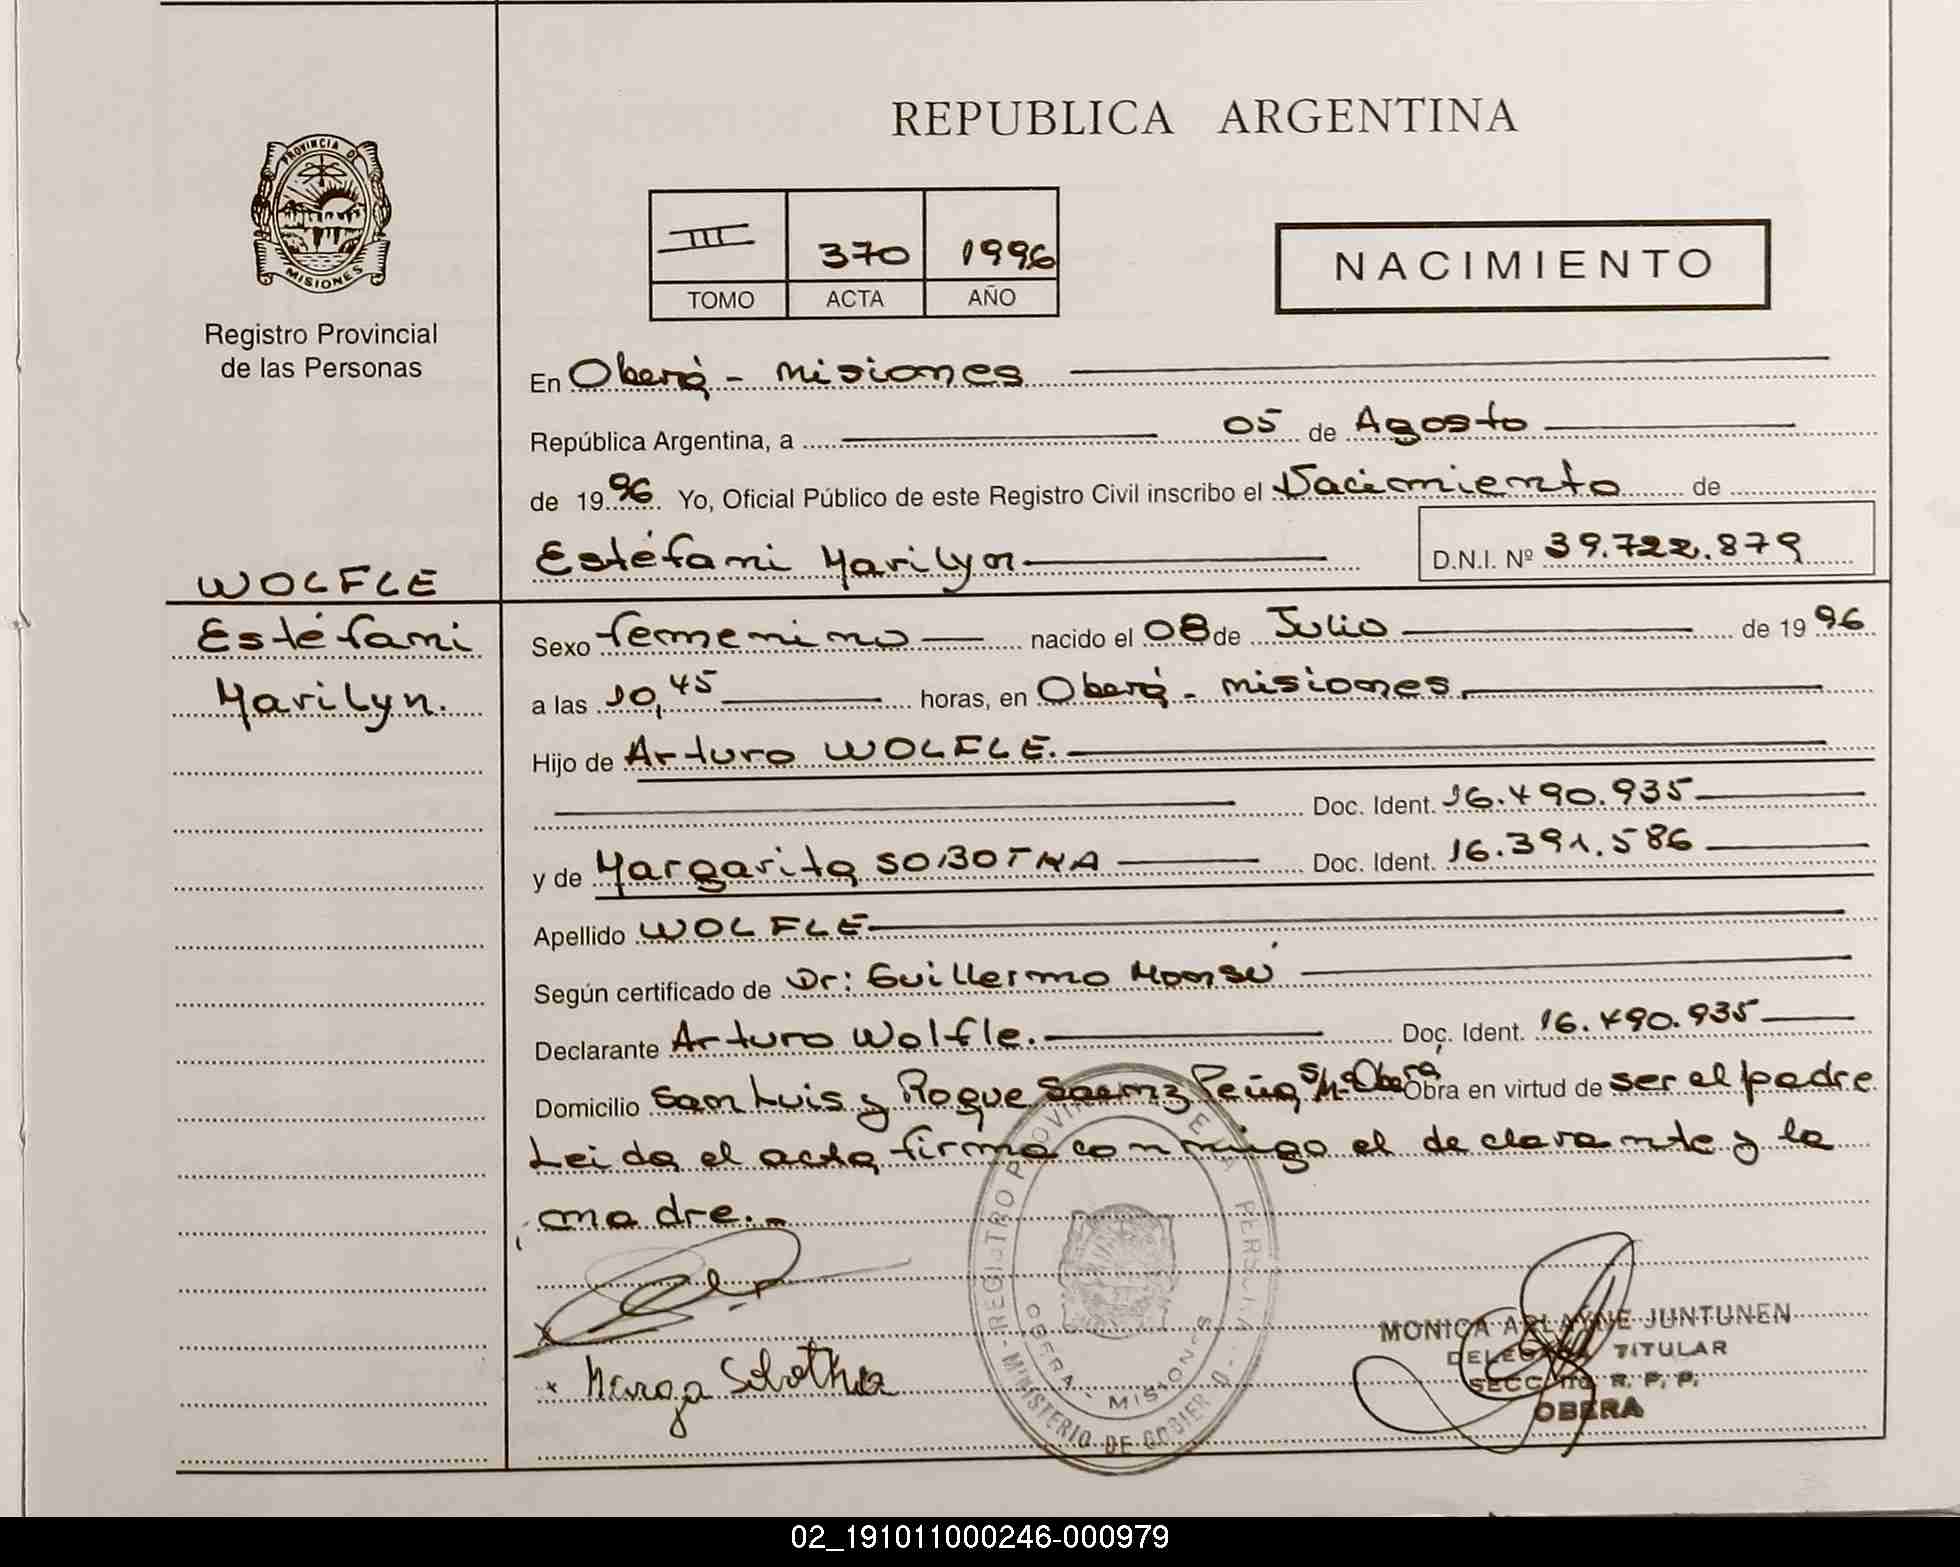 REPUBLICA ARGENTINA
PROVINCIA DE
MISIONES
Registro Provincial
de las Personas
III 370 1996
TOMO ACTA AÑO
NACIMIENTO
En Oberá - Misiones
República Argentina, a 05 de Agosto
de 1996. Yo, Oficial Público de este Registro Civil inscribo el Nacimiento de
Estéfani Marilyn D.N.I. Nº 39.722.879
WOLFLE
Estéfani
Marilyn.
Sexo femenino nacido el 08 de Julio de 1996
a las 10,45 horas, en Oberá - Misiones.
Hijo de Arturo WOLFLE.
Doc. Ident. 16.490.935
y de Margarita SOBOTKA Doc. Ident. 16.391.586
Apellido WOLFLE
Según certificado de Dr: Guillermo
Declarante Arturo Wolfle. Doc. Ident. 16.490.935
Domicilio San Luis y Roque Saenz Peña s/nº Oberá Obra en virtud de ser el padre
Leida el acta firma conmigo el declarante y la
madre.-
x
x Marga Sobotka
REGISTRO PROVINCIAL DE LAS PERSONAS
OBERA - MISIONES
MINISTERIO DE GOBIERNO
MONICA ARLAYNE JUNTUNEN
DELEGADA TITULAR
SECC. R. P. P.
OBERA
02_191011000246-000979